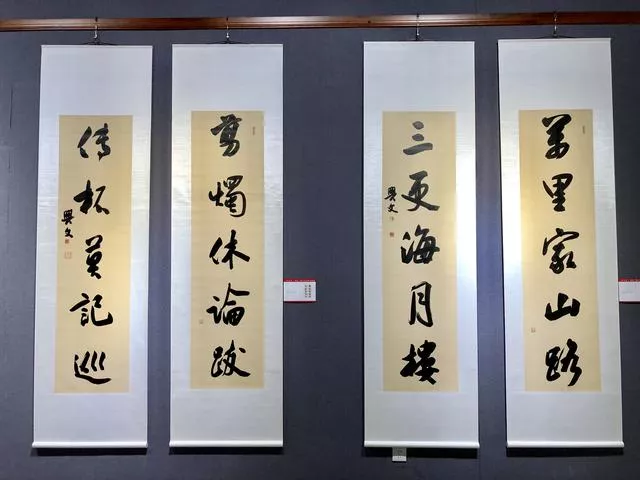 萬里家山路
三更海月樓
興文
剪燭休論跋
傳杯莫記巡
興文